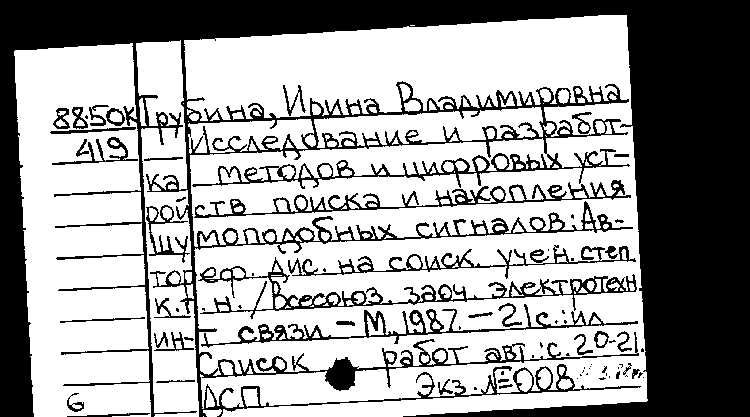 88-50К Трубина, Ирина Владимировна
419 Исследование и разработ-
ка методов и цифровых уст-
ройств поиска и накопления
шумоподобных сигналов: Ав-
тореф. дис. на соиск. учен. степ.
к.т.н. / Всесоюз. заоч. электротехн.
ин-т связи. - М., 1987. - 21 с.: ил
Список работ авт.: с. 20-21.
6 ДСП. Экз. №008.